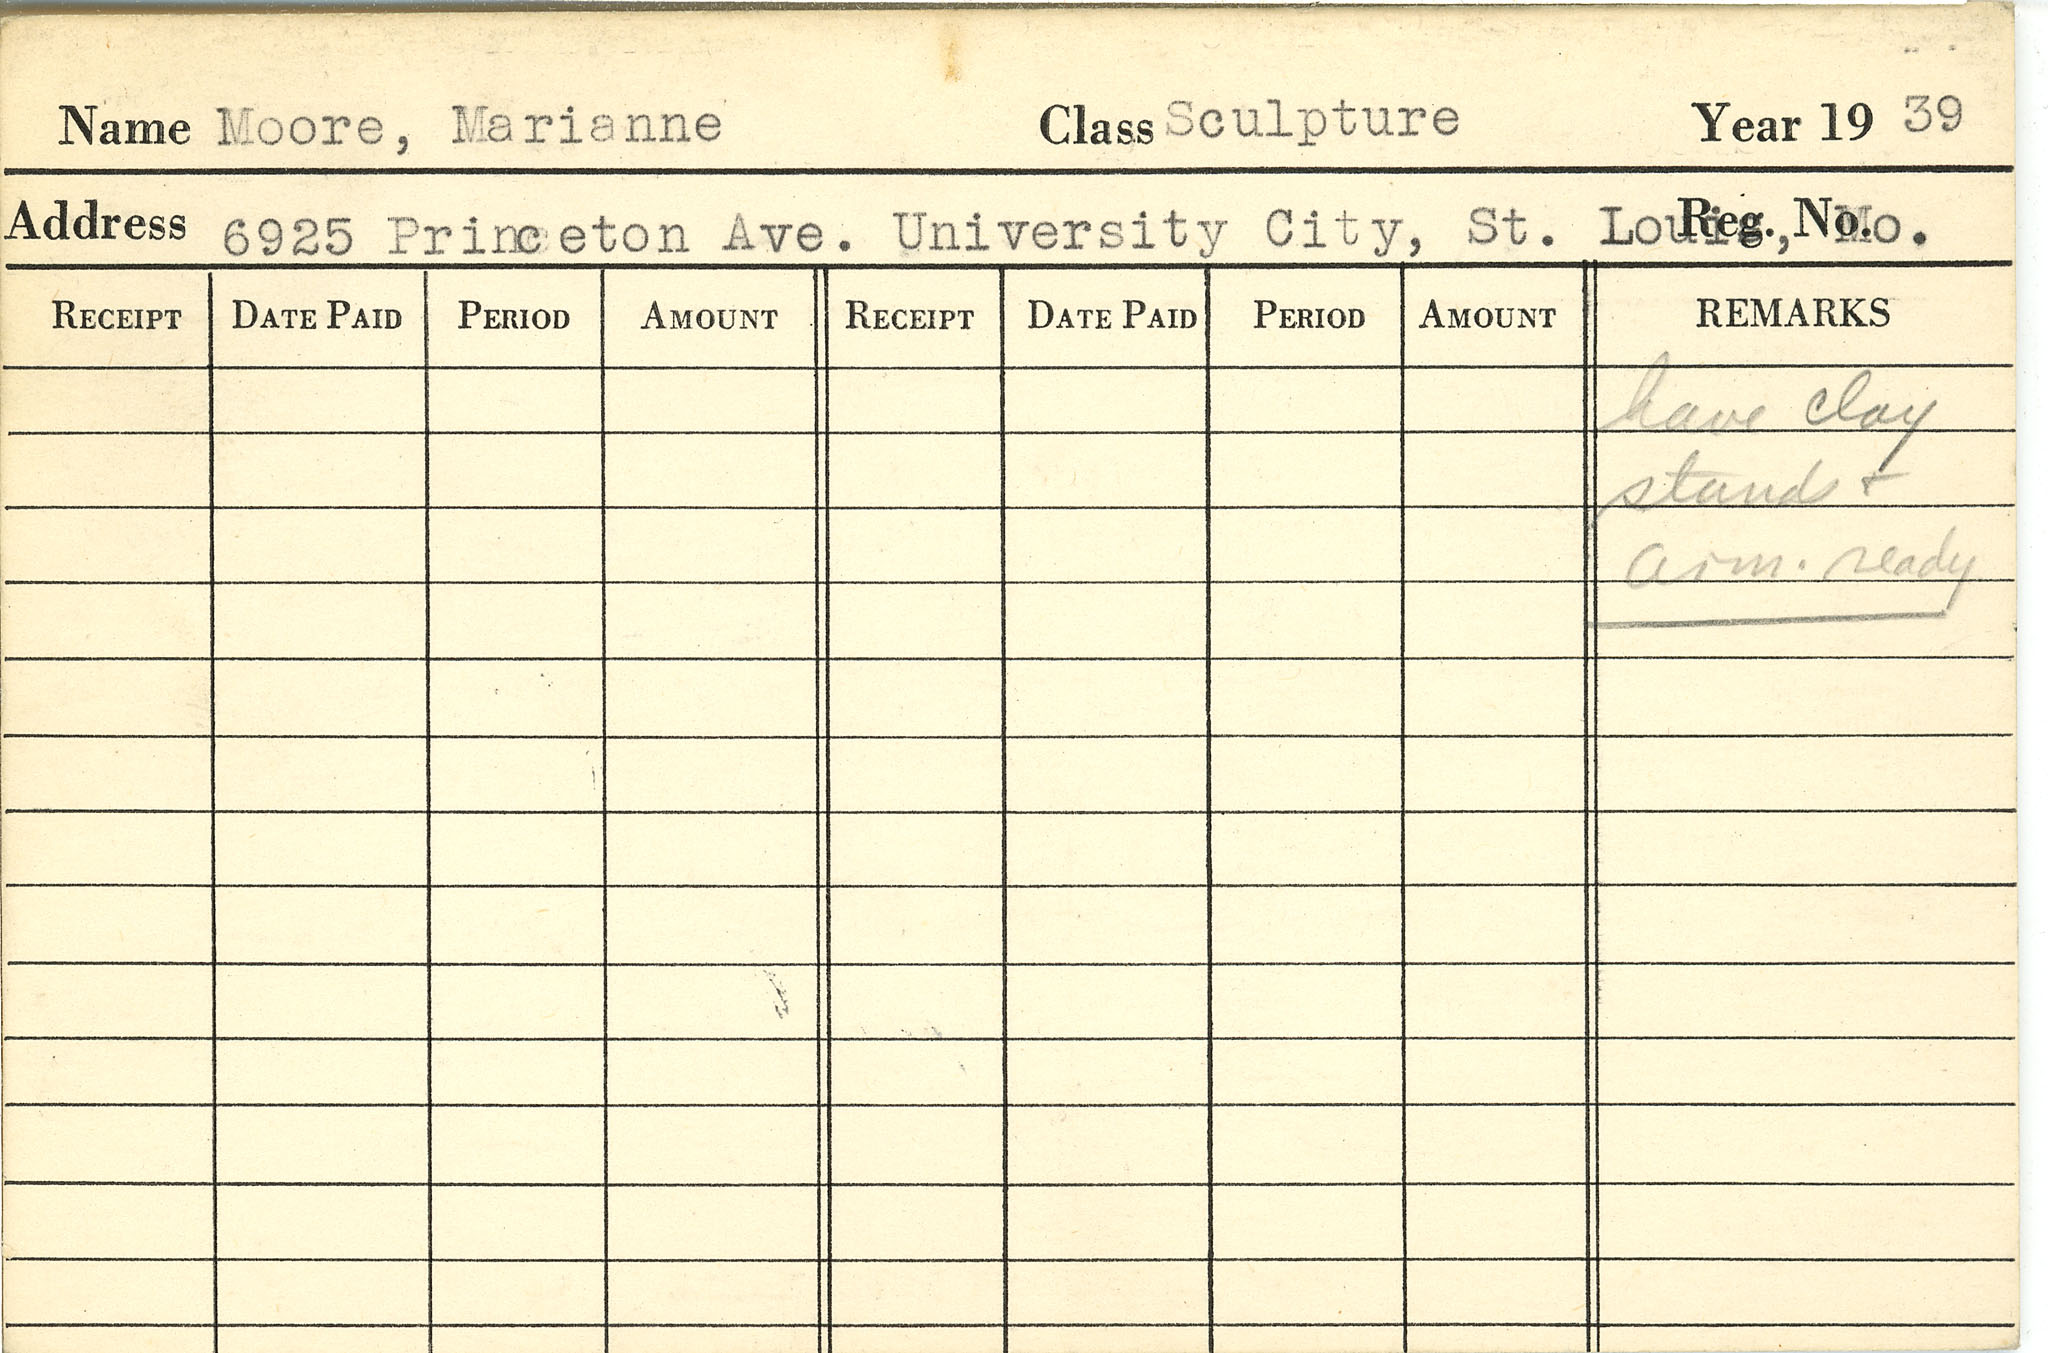 Name Moore, Marianne Class Sculpture Year 19 39
Address 6925 Princeton Ave. University City, St. Louis, Mo. Reg. No.
RECEIPT DATE PAID PERIOD AMOUNT RECEIPT DATE PAID PERIOD AMOUNT REMARKS
have clay
stands +
arm. ready